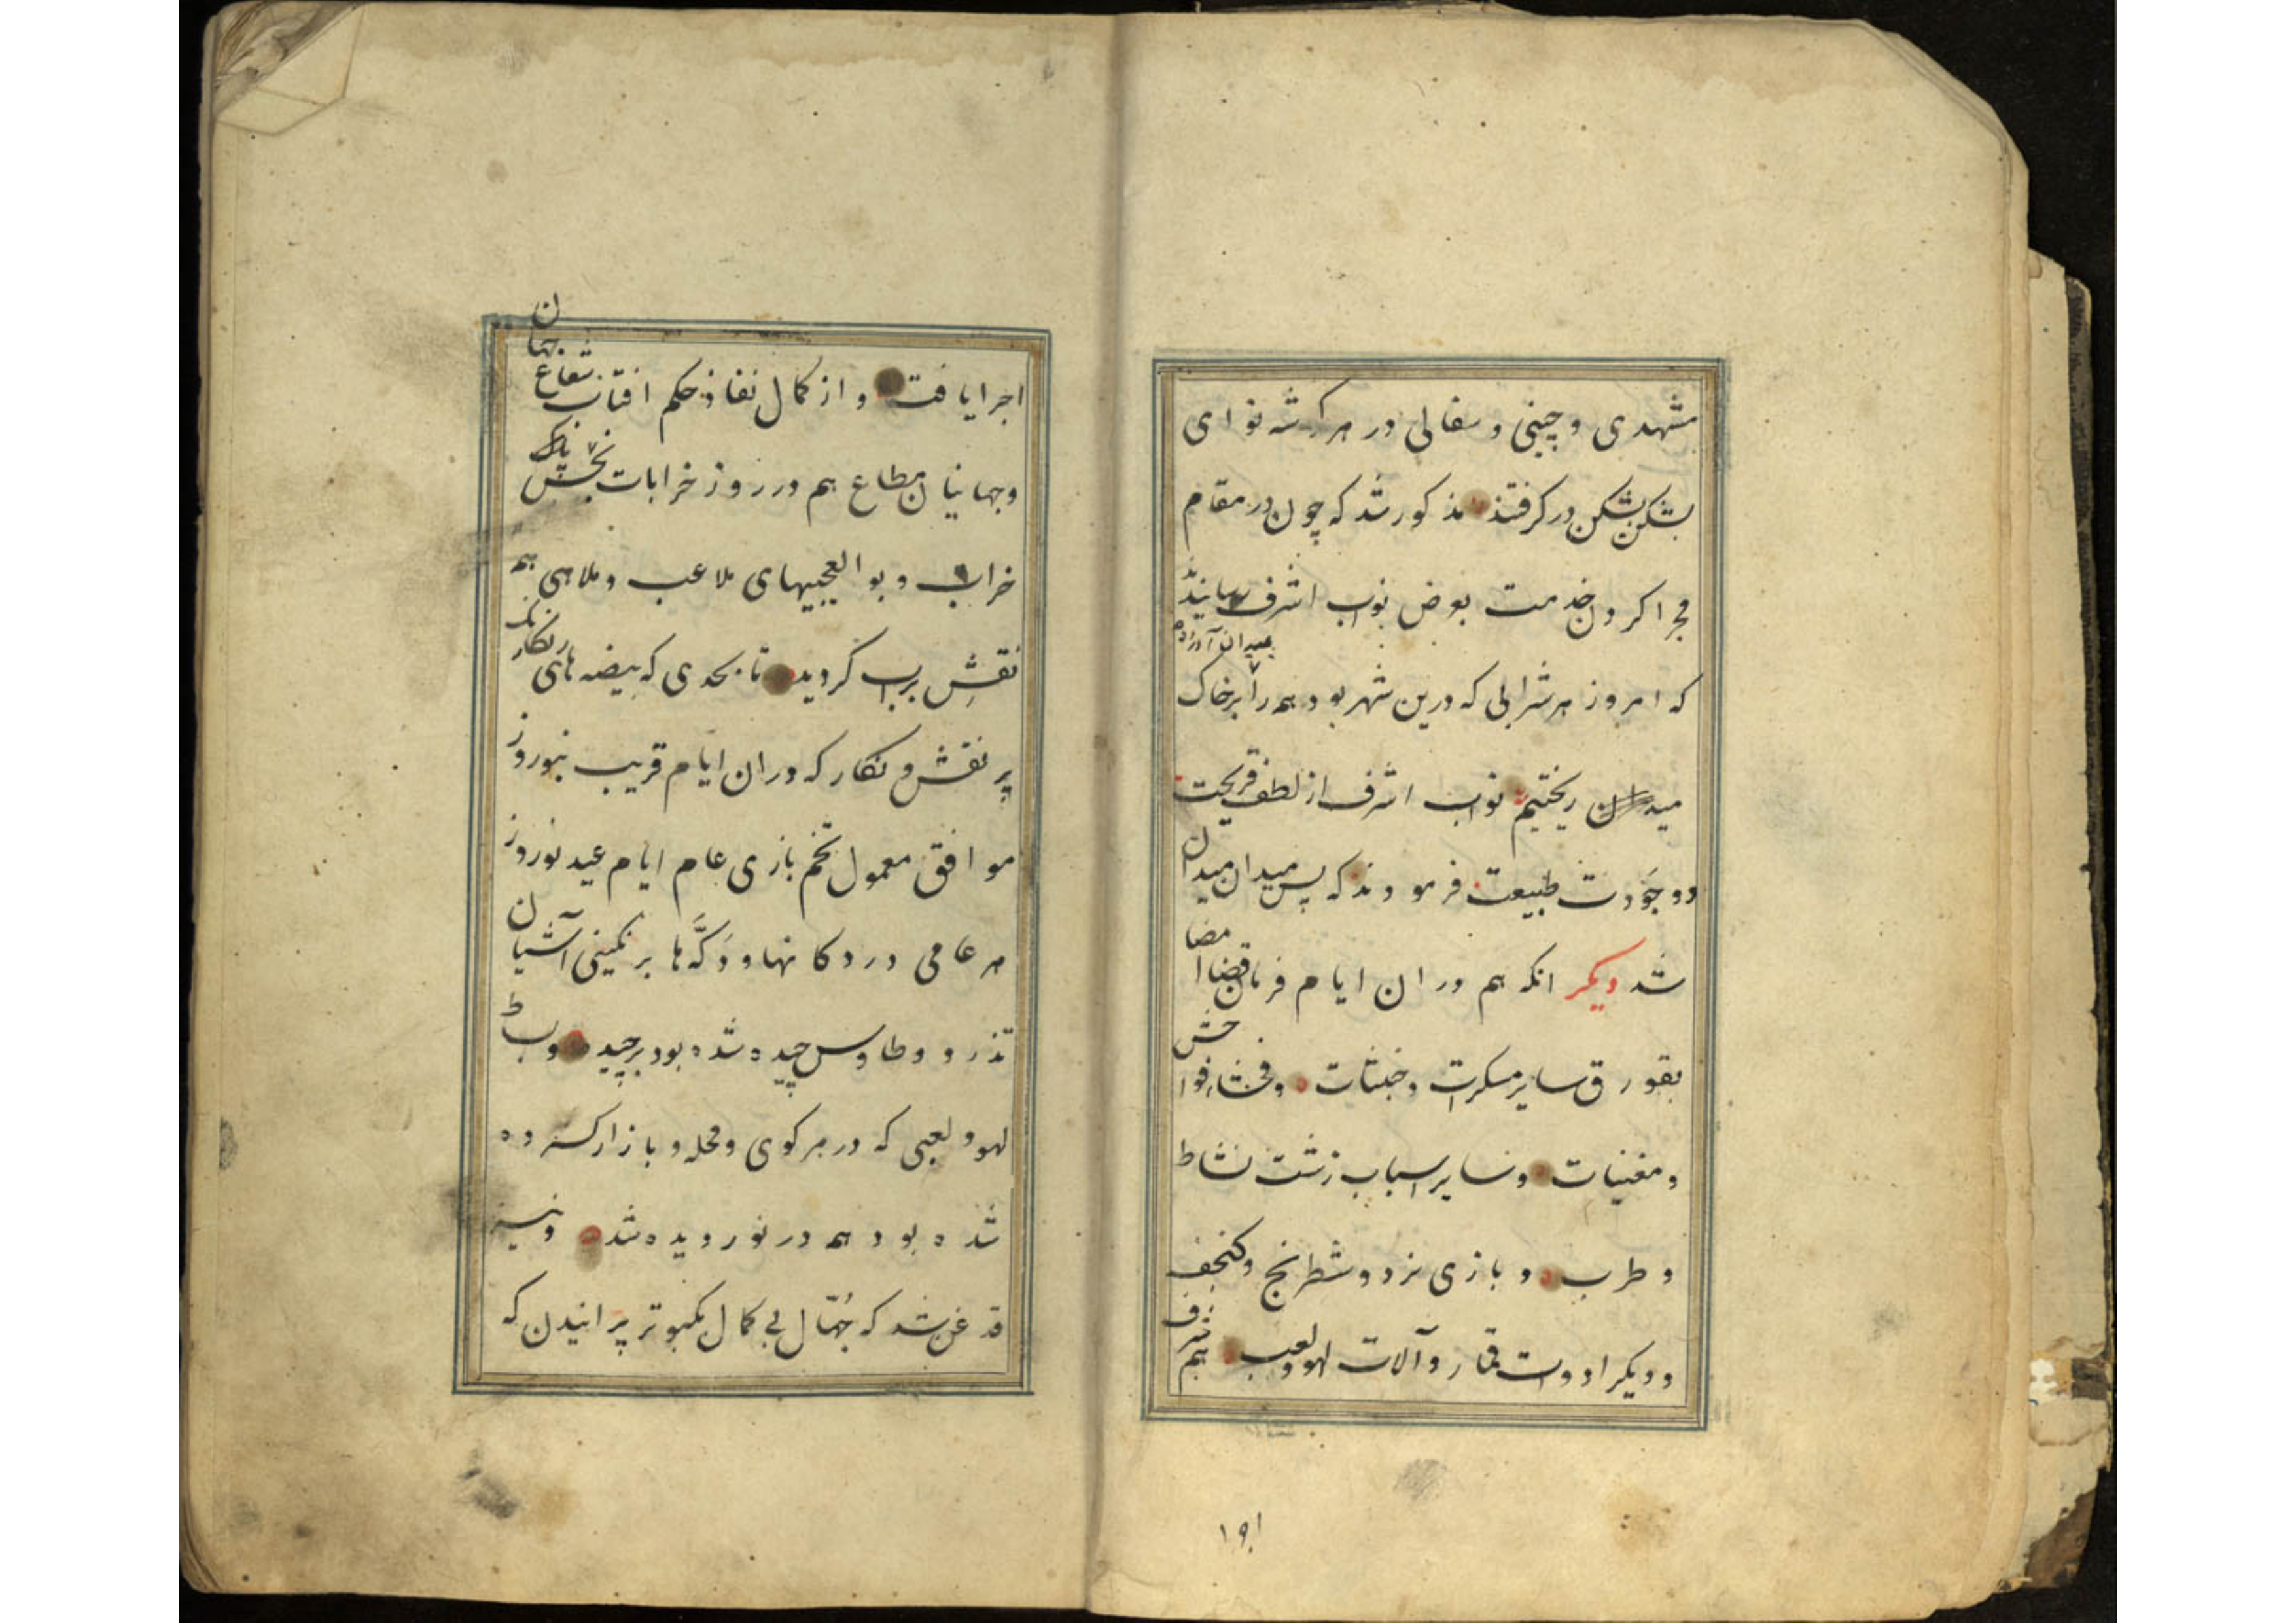 مشهدی و چینی و سفالی در هر گوشه نوای
بشکن بشکن در گرفتند مذکور شد که چون در مقام
مجرا کردن خدمت بعرض نواب اشرف رسانیدند
بمیدان آورده
که امروز هر شرابی که درین شهر بود همه را بر خاک
میدان ریختیم نواب اشرف از لطف قریحت
و جَودت طبیعت فرمودند که پس میدان میدان
شد دیگر انکه هم در ان ایام فرمان قضا امضا
بقورق سایر مسکرات و خبثات و فحشا و فواحش
و مغنیات و سایر اسباب زشت نشاط
و طرب و بازی نرد و شطرنج و کنجفه
و دیگر ادوات قمار و آلات لهو و لعب هم شرف
۱۹۱
اجرا یافت و از کمال نفاذ حکم افتاب شعاع جهان
و جهانیان مطاع هم در روز خرابات بخش ناپاک
خراب و بو العجبیهای ملاعب و ملاهی هم
نقش بر اب کردید تا بحدی که بیضه های رنکارنک
پر نقش و نکار که دران ایام قریب بنوروز
موافق معمول تخم بازی عام ایام عید نوروز
هر عامی در دکانها و دَکَّه ها برنکینی آشیان
تذرو و طاوس چیده شده بود برچید و بساط
لهو و لعبی که در هر کوی و محله و بازار کسترده
شده بود هم در نوردیده شد و نیز
قدغن شد که جُهّال بی کمال بکبوتر پرانیدن که